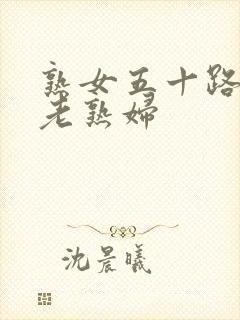 熟女五十路
老熟婦
沈晨曦